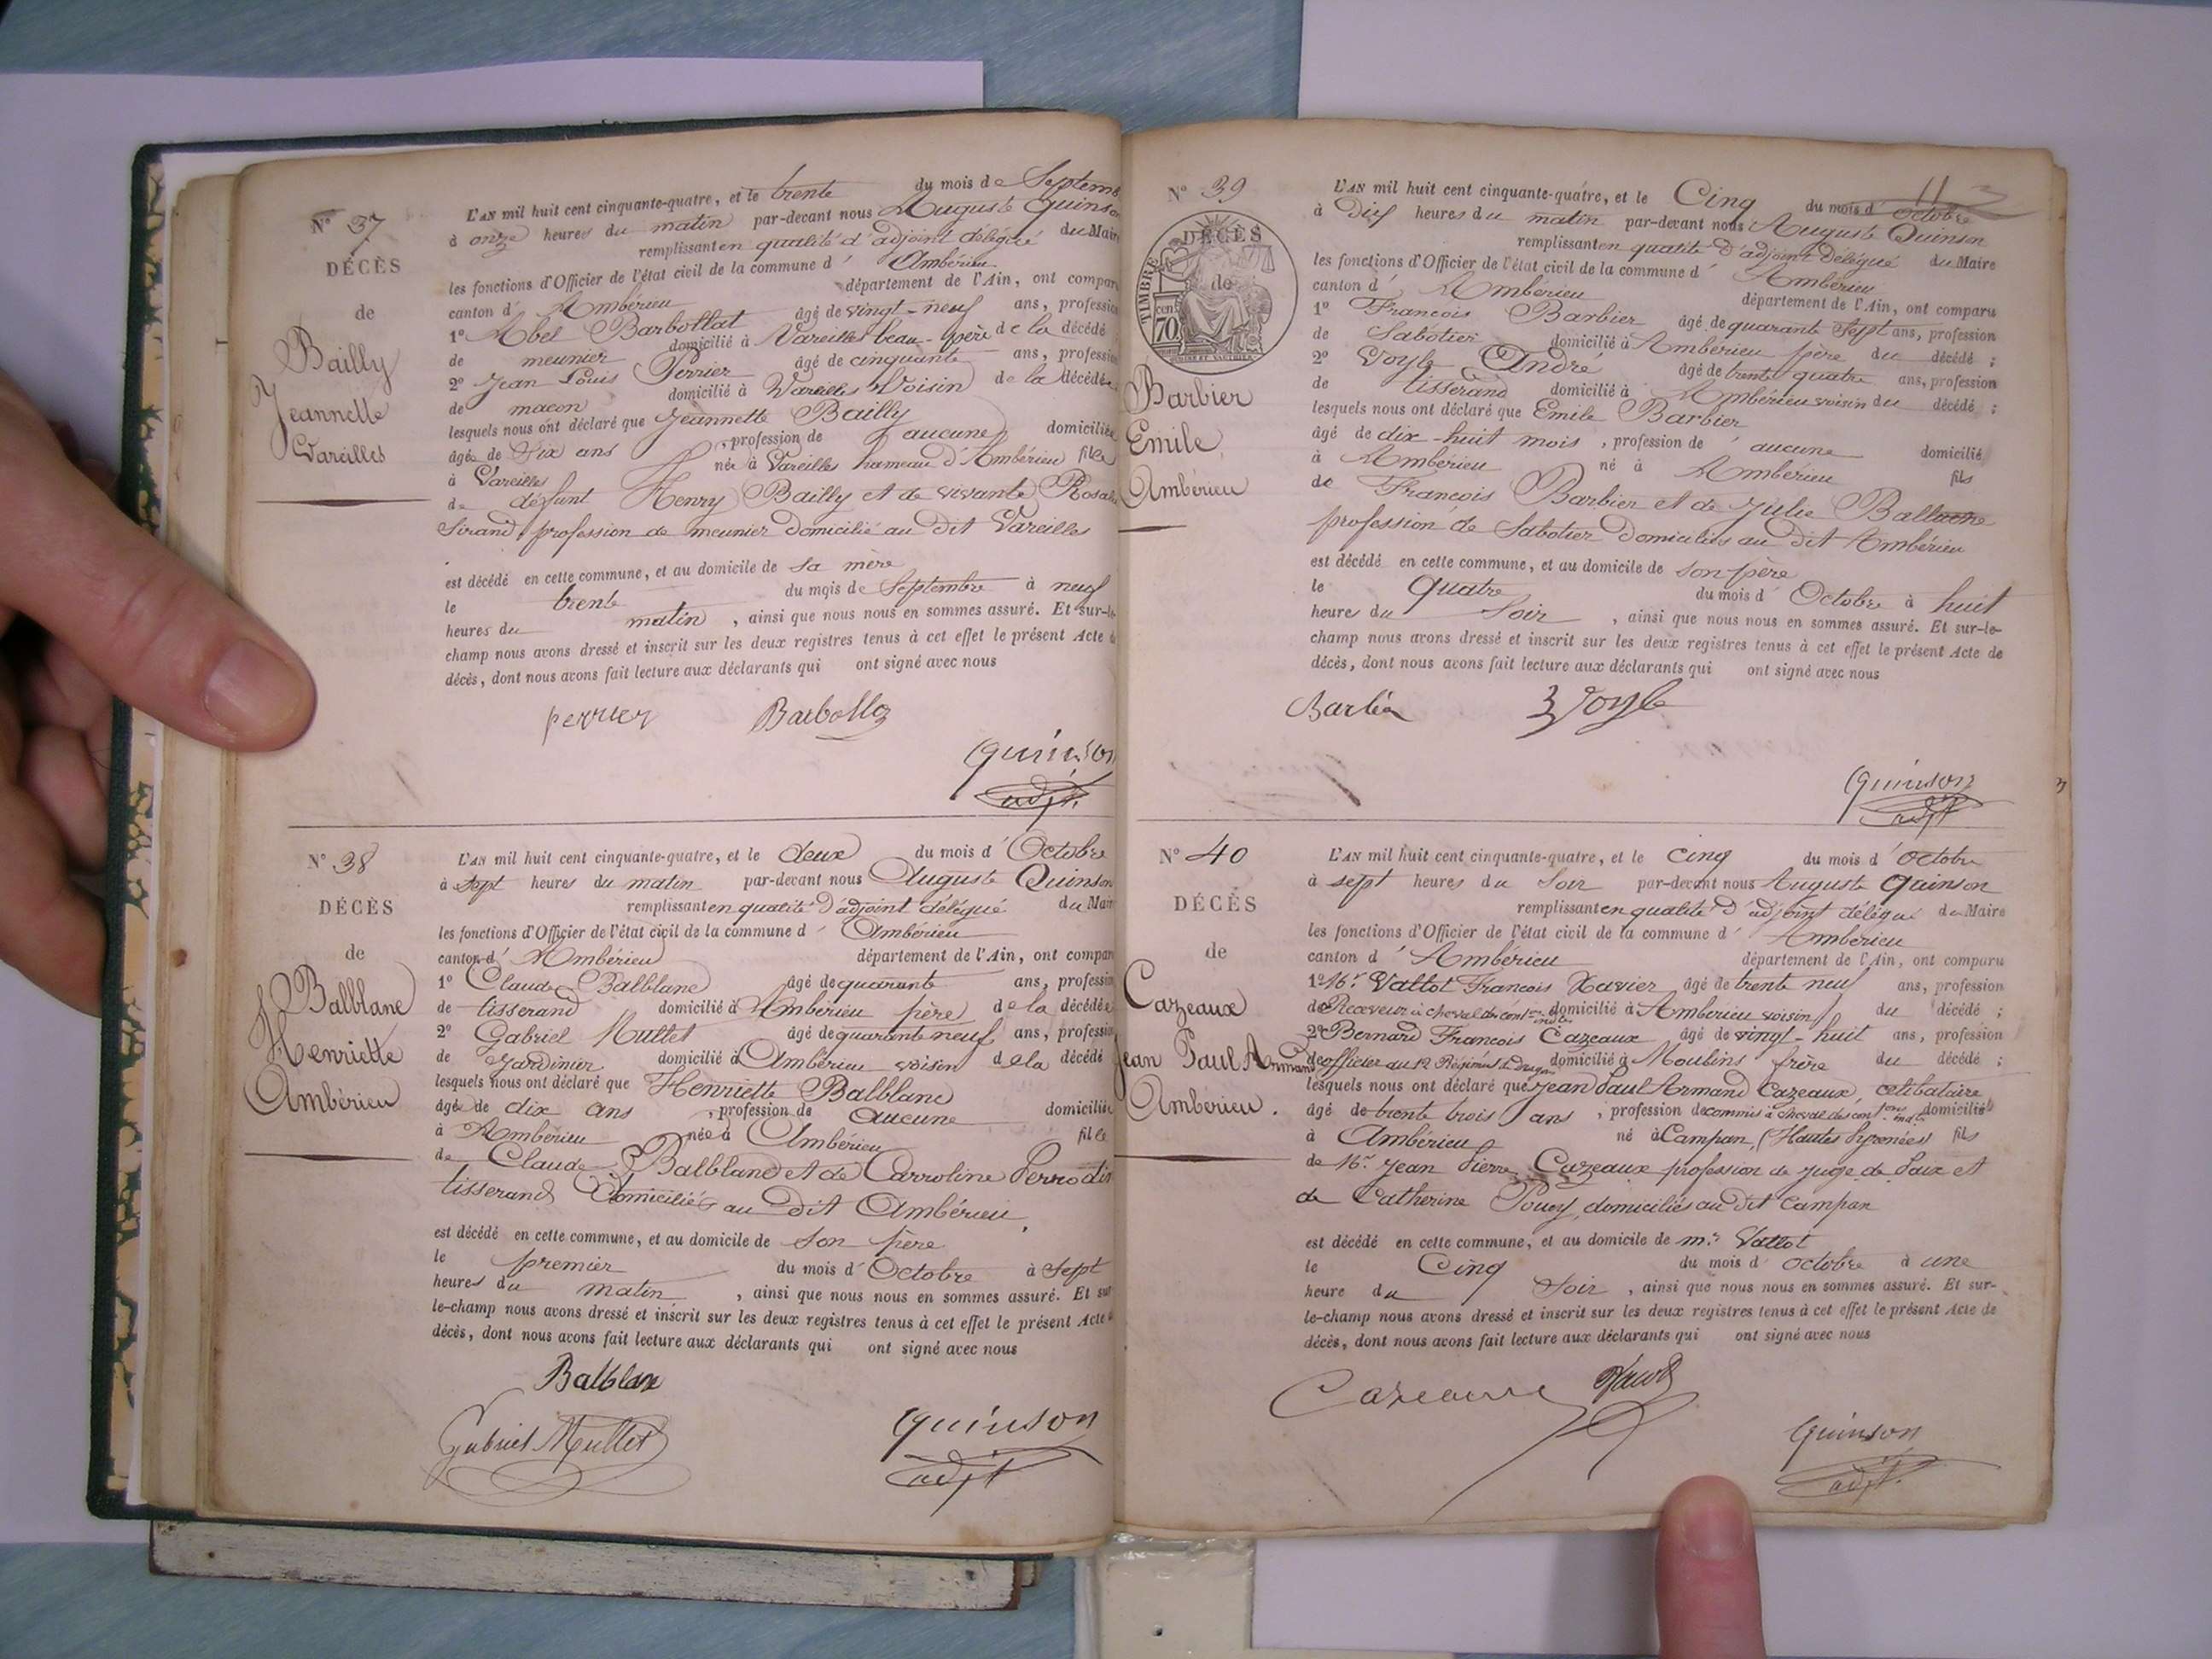 N° 37
DÉCÈS
de
Bailly
Jeannette
Vareilles
L'AN mil huit cent cinquante-quatre, et le trente du mois de Septemb
à onze heures du matin par-devant nous Auguste Quinson
remplissant en qualité d'adjoint délégué du Maire
les fonctions d'Officier de l'état civil de la commune d' Ambérieu
canton d' Ambérieu département de l'Ain, ont compar
1° Abel Barbollat âgé de vingt-neuf ans, profession
de meunier domicilié à Vareilles beau-père de la décédé
2° Jean Louis Perrier âgé de cinquante ans, profession
de macon domicilié à Vareilles Voisin de la décédée
lesquels nous ont déclaré que Jeannette Bailly
âgée de Six ans, profession de aucune domiciliée
à Vareilles née à Vareilles hameau d'Ambérieu fille
de défunt Henry Bailly et de vivante Rosalie
Sirand, profession de meunier domicilié au dit Vareilles
est décédé en cette commune, et au domicile de sa mère
le trente du mois de Septembre à neuf
heures du matin, ainsi que nous nous en sommes assuré. Et sur-le-
champ nous avons dressé et inscrit sur les deux registres tenus à cet effet le présent Acte de
décès, dont nous avons fait lecture aux déclarants qui ont signé avec nous
perrier Barbollaz
quinson
adjt.
N° 38
DÉCÈS
de
Balblanc
Henriette
Ambérieu
L'AN mil huit cent cinquante-quatre, et le deux du mois d' Octobre
à sept heures du matin par-devant nous Auguste Quinson
remplissant en qualité d'adjoint délégué du Maire
les fonctions d'Officier de l'état civil de la commune d' Ambérieu
canton d' Ambérieu département de l'Ain, ont compar
1° Claude Balblanc âgé de quarante ans, profession
de tisserand domicilié à Ambérieu père de la décédée
2° Gabriel Mullet âgé de quarante neuf ans, profession
de Jardinier domicilié à Ambérieu voisin de la décédé
lesquels nous ont déclaré que Henriette Balblanc
âgée de dix ans, profession de aucune domiciliée
à Ambérieu née à Ambérieu fille
de Claude Balblanc et de Carroline Perrodin
tisserand Domiciliés au dit Ambérieu,
est décédé en cette commune, et au domicile de Son père
le premier du mois d' Octobre à Sept
heures du matin, ainsi que nous nous en sommes assuré. Et sur
le-champ nous avons dressé et inscrit sur les deux registres tenus à cet effet le présent Acte de
décès, dont nous avons fait lecture aux déclarants qui ont signé avec nous
Balblan
Gabriel Mullet quinson
adjt
11
N° 39
DÉCÈS
de
TIMBRE
70 cent
Barbier
Emile
Ambérieu
L'AN mil huit cent cinquante-quatre, et le Cinq du mois d' Octobre
à Dix heures du matin par-devant nous Auguste Quinson
remplissant en qualité d'adjoint Délégué du Maire
les fonctions d'Officier de l'état civil de la commune d' Ambérieu
canton d' Ambérieu département de l'Ain, ont comparu
1° Francois Barbier âgé de quarante Sept ans, profession
de Sabotier domicilié à Ambérieu père du décédé ;
2° Voyle André âgé de trente quatre ans, profession
de tisserand domicilié à Ambérieu voisin du décédé ;
lesquels nous ont déclaré que Emile Barbier
âgé de dix-huit mois, profession de aucune domicilié
à Ambérieu né à Ambérieu fils
de Francois Barbier et de Julie
profession de Sabotier Domiciliés au Dit Ambérieu
est décédé en cette commune, et au domicile de son père
le Quatre du mois d' Octobre à huit
heures du Soir, ainsi que nous nous en sommes assuré. Et sur-le-
champ nous avons dressé et inscrit sur les deux registres tenus à cet effet le présent Acte de
décès, dont nous avons fait lecture aux déclarants qui ont signé avec nous
Quinson
adjt
N° 40
DÉCÈS
de
Cazeaux
Jean Paul Armand
Ambérieu.
L'AN mil huit cent cinquante-quatre, et le cinq du mois d' octobre
à sept heures du Soir par-devant nous Auguste Quinson
remplissant en qualité d'adjoint délégué du Maire
les fonctions d'Officier de l'état civil de la commune d' Ambérieu
canton d' Ambérieu département de l'Ain, ont comparu
1° Mr. Vallot Francois Xavier âgé de trente neuf ans, profession
de Receveur à cheval des contons indtes domicilié à Ambérieu voisin du décédé ;
2° Bernard Francois Cazeaux âgé de vingt-huit ans, profession
de officier au 12 Régiment de Dragon domicilié à Moulins frère du décédé ;
lesquels nous ont déclaré que Jean Paul Armand Cazeaux, célibataire
âgé de trente trois ans, profession de commis à cheval des contons indtes domicilié
à Ambérieu né à Campan, (Hautes Pyrenées) fils
de Mr. Jean Pierre Cazeaux profession de juge de Paix et
de Catherine Pouey, domiciliés au dit Campan
est décédé en cette commune, et au domicile de mr. Vallot
le Cinq du mois d' octobre à une
heure du Soir, ainsi que nous nous en sommes assuré. Et sur-
le-champ nous avons dressé et inscrit sur les deux registres tenus à cet effet le présent Acte de
décès, dont nous avons fait lecture aux déclarants qui ont signé avec nous
Cazeaux
Quinson
adjt.